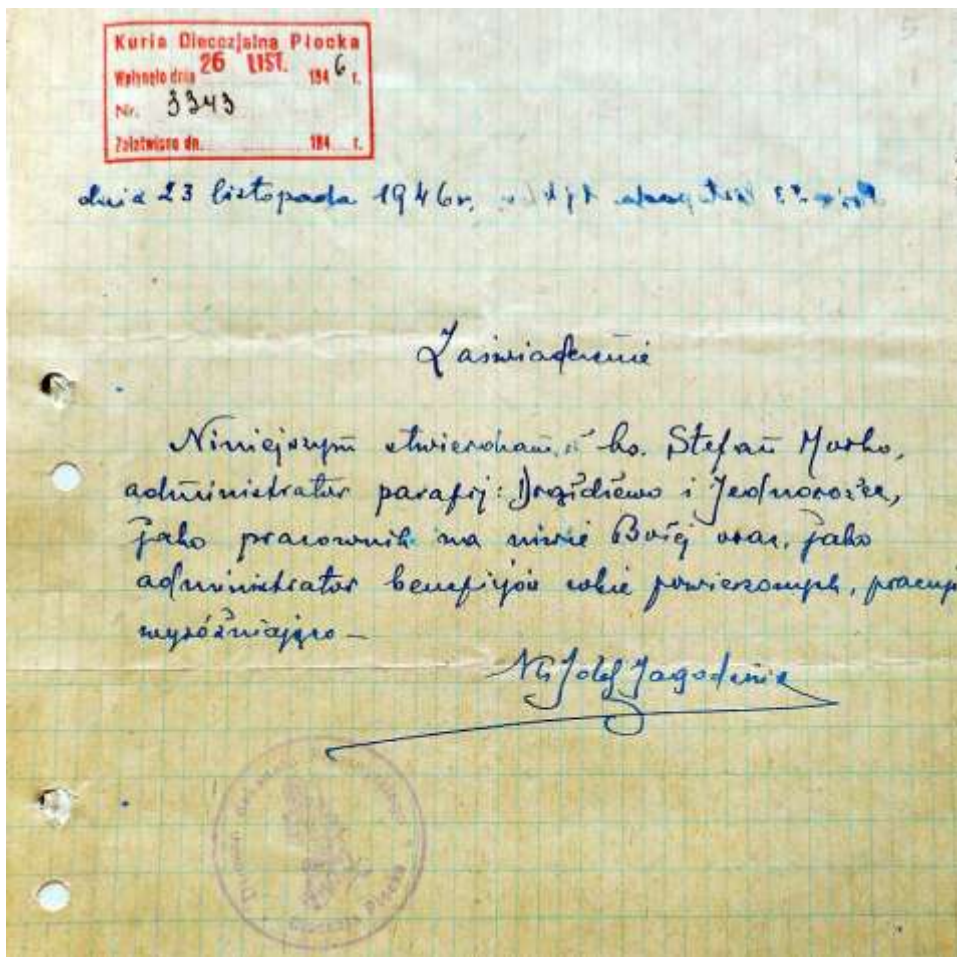 5
Kuria Diecezjalna Płocka
Wpłynęło dnia 26 LIST. 1946 r.
Nr. 3343
Załatwiono dn. 194 r.
dnia 23 listopada 1946r.
Zaświadczenie
Niniejszym stwierdzam, iż ks. Stefan Morko,
administrator parafij: Drążdżewo i Jednorożec,
jako pracownik na niwie Bożej oraz, jako
administrator beneficjów sobie powierzonych, pracuje
wyróżniająco –
Ks Józef Jagodziński
Dziekan
Diecezja Płocka